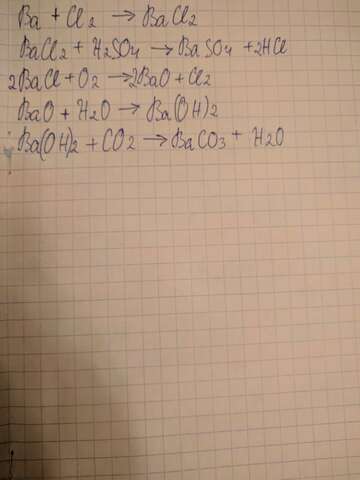 Ba + Cl2 → BaCl2
BaCl2 + H2SO4 → BaSO4 + 2HCl
2BaCl + O2 → 2BaO + Cl2
BaO + H2O → Ba(OH)2
Ba(OH)2 + CO2 → BaCO3 + H2O